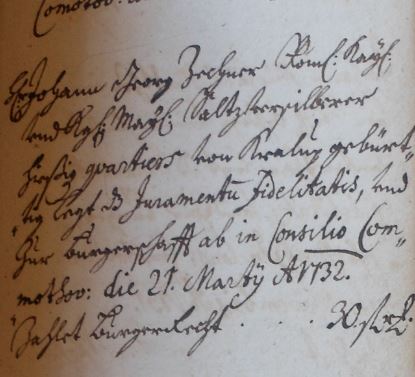 Comotov:
H: Johann Georg Zechner Röm: Kayß:
und Kgl: Mayß: Saltzversilberer
hießig quartiers von Kralup gebürt„
„tig legt dz Juramentu Fidelitatis, und
zur burgerschafft ab in Consilio Com„
mothov: die 21. Martÿ A 1732.
Zahlet burgerRecht . . . 30.